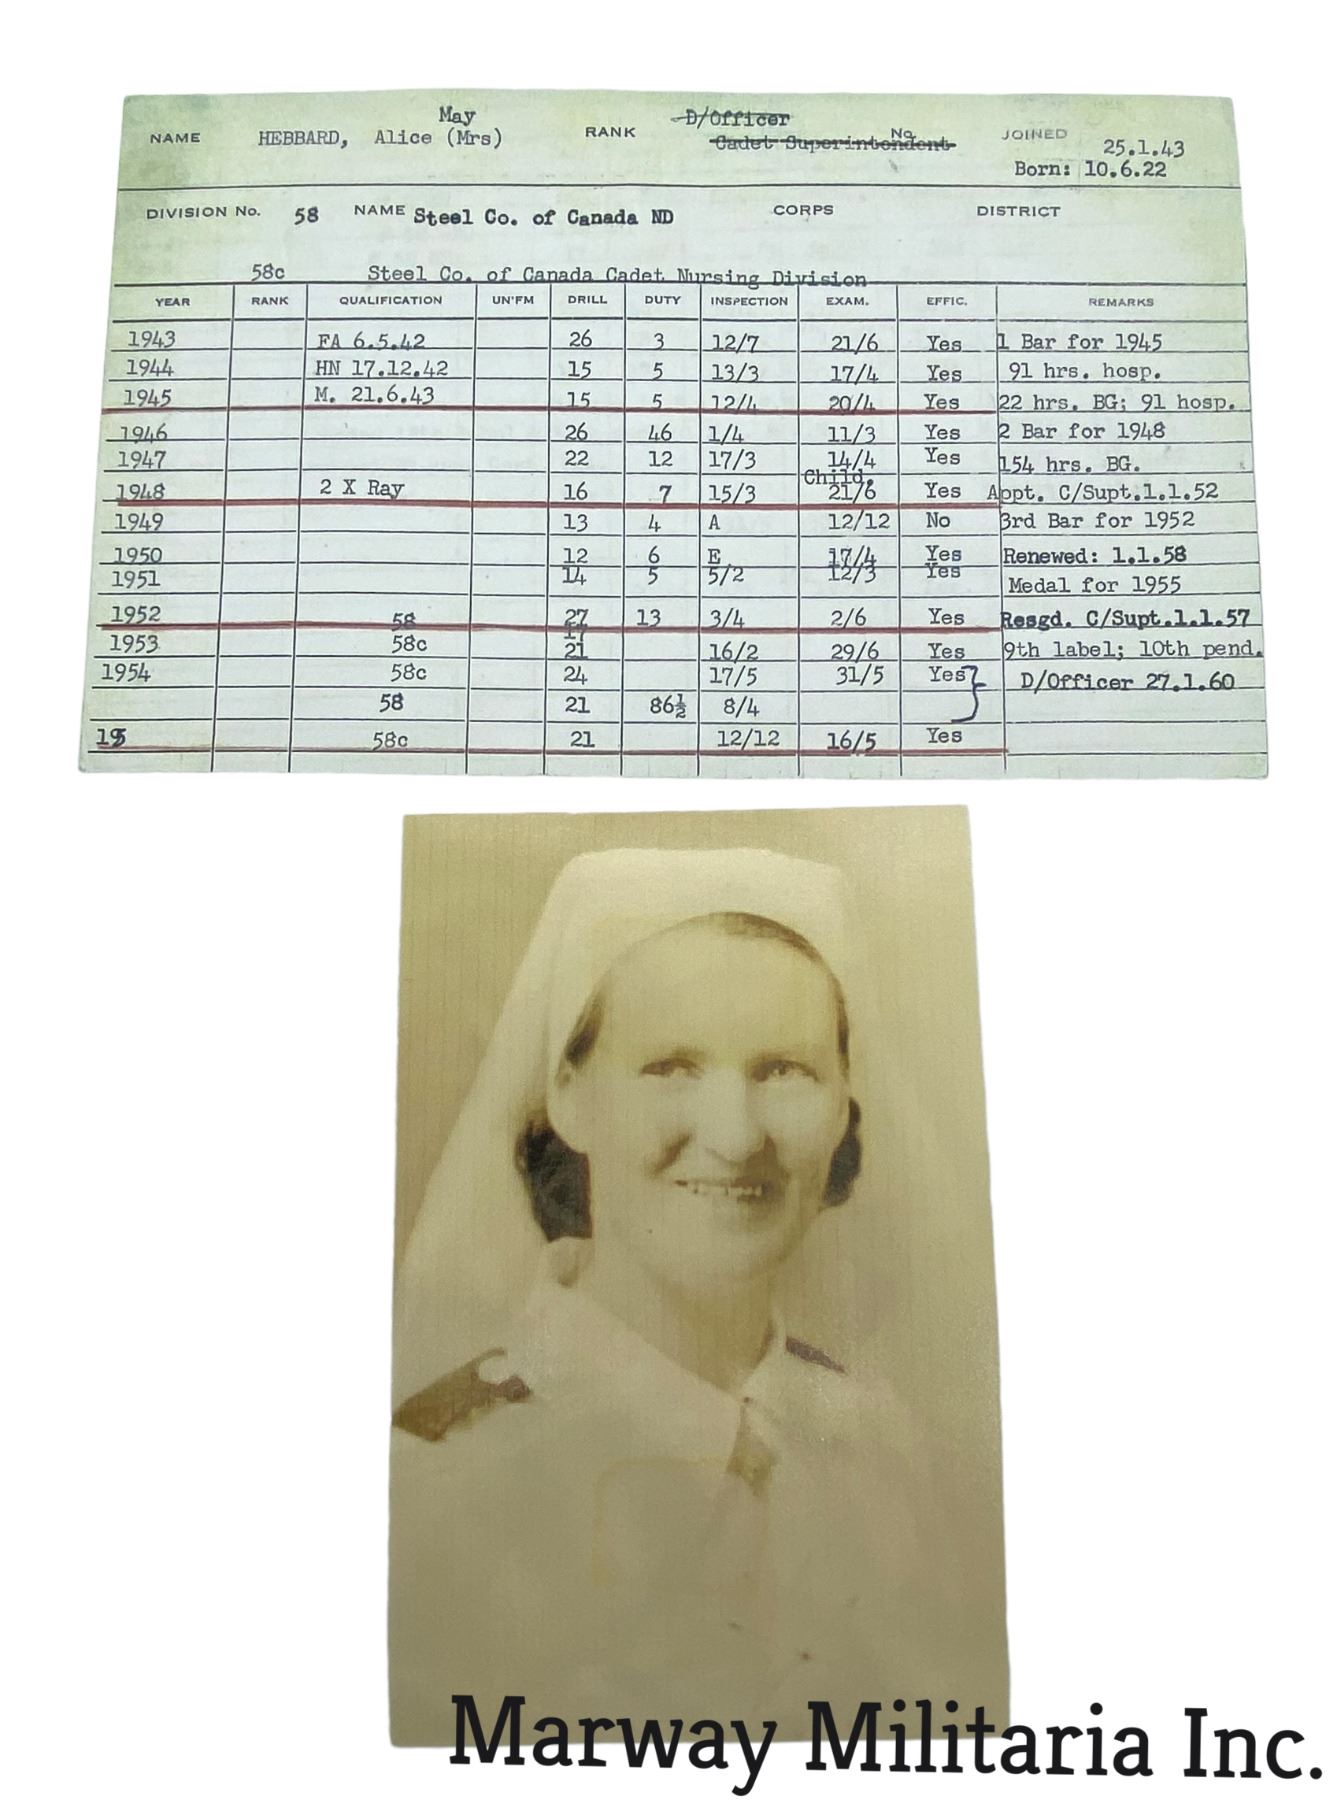 May
NAME HEBBARD, Alice (Mrs) RANK D/Officer JOINED 25.1.43
Cadet Superintendent No
Born: 10.6.22
DIVISION No. 58 NAME Steel Co. of Canada ND CORPS DISTRICT
58c Steel Co. of Canada Cadet Nursing Division
YEAR RANK QUALIFICATION UN'FM DRILL DUTY INSPECTION EXAM. EFFIC. REMARKS
1943 FA 6.5.42 26 3 12/7 21/6 Yes 1 Bar for 1945
1944 HN 17.12.42 15 5 13/3 17/4 Yes 91 hrs. hosp.
1945 M. 21.6.43 15 5 12/4 20/4 Yes 22 hrs. BG; 91 hosp.
1946 26 46 1/4 11/3 Yes 2 Bar for 1948
1947 22 12 17/3 14/4 Yes 154 hrs. BG.
Child.
1948 2 X Ray 16 7 15/3 21/6 Yes Appt. C/Supt.1.1.52
1949 13 4 A 12/12 No 3rd Bar for 1952
1950 12 6 E 17/4 Yes Renewed: 1.1.58
1951 14 5 5/2 12/3 Yes Medal for 1955
1952 58 27 13 3/4 2/6 Yes Resgd. C/Supt.1.1.57
17
1953 58c 21 16/2 29/6 Yes 9th label; 10th pend.
1954 58c 24 17/5 31/5 Yes D/Officer 27.1.60
58 21 86½ 8/4
58c 21 12/12 16/5 Yes
Marway Militaria Inc.